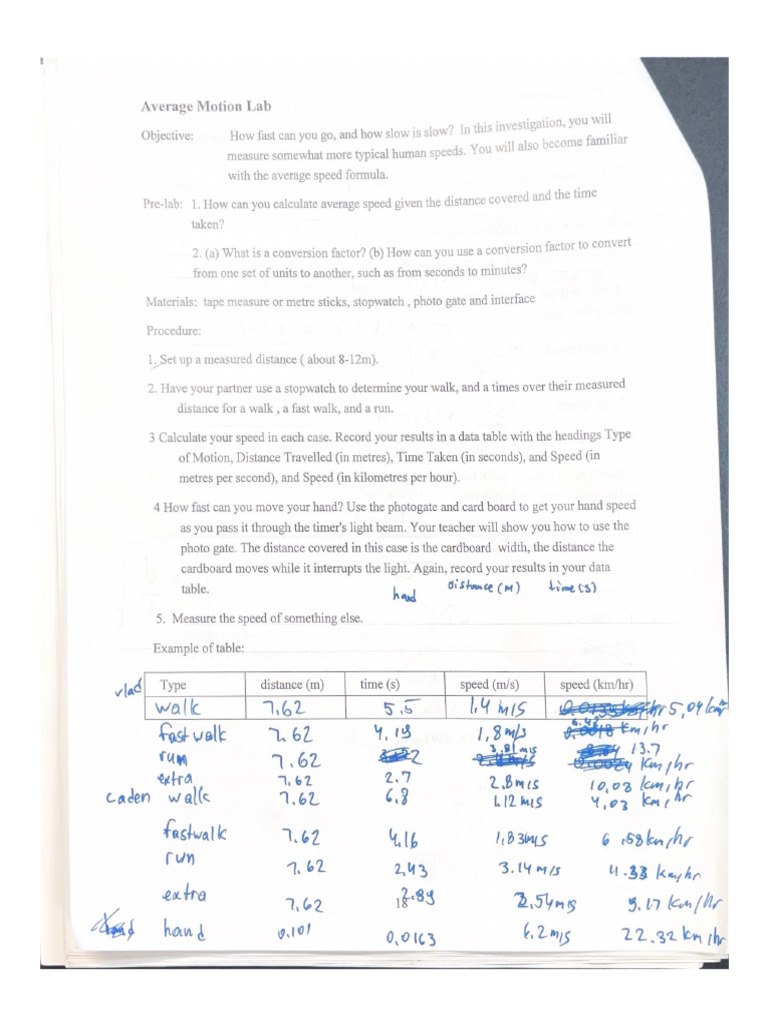 Average Motion Lab
Objective: How fast can you go, and how slow is slow? In this investigation, you will
measure somewhat more typical human speeds. You will also become familiar
with the average speed formula.
Pre-lab: 1. How can you calculate average speed given the distance covered and the time
taken?
2. (a) What is a conversion factor? (b) How can you use a conversion factor to convert
from one set of units to another, such as from seconds to minutes?
Materials: tape measure or metre sticks, stopwatch , photo gate and interface
Procedure:
1. Set up a measured distance ( about 8-12m).
2. Have your partner use a stopwatch to determine your walk, and a times over their measured
distance for a walk , a fast walk, and a run.
3 Calculate your speed in each case. Record your results in a data table with the headings Type
of Motion, Distance Travelled (in metres), Time Taken (in seconds), and Speed (in
metres per second), and Speed (in kilometres per hour).
4 How fast can you move your hand? Use the photogate and card board to get your hand speed
as you pass it through the timer's light beam. Your teacher will show you how to use the
photo gate. The distance covered in this case is the cardboard width, the distance the
cardboard moves while it interrupts the light. Again, record your results in your data
table.
hand distance (m) time (s)
5. Measure the speed of something else.
Example of table:
vlad Type distance (m) time (s) speed (m/s) speed (km/hr)
walk 7.62 5.5 1.4 m/s 5,04 km
fast walk 7.62 4.19 1,8 m/s 6.48 km/hr
run 7.62 3.81 m/s 13.7 km/hr
extra 7,62 2.7 2.8 m/s 10,08 km/hr
caden walk 7.62 6.8 1.12 m/s 4,03 km/hr
fastwalk 7.62 4.16 1,83 m/s 6.58 km/hr
run 7.62 2,43 3.14 m/s 4.33 km/hr
extra 7,62 2.99 2,54 m/s 9.17 km/hr
18
hand 0.101 0,0163 6.2 m/s 22.32 km/hr